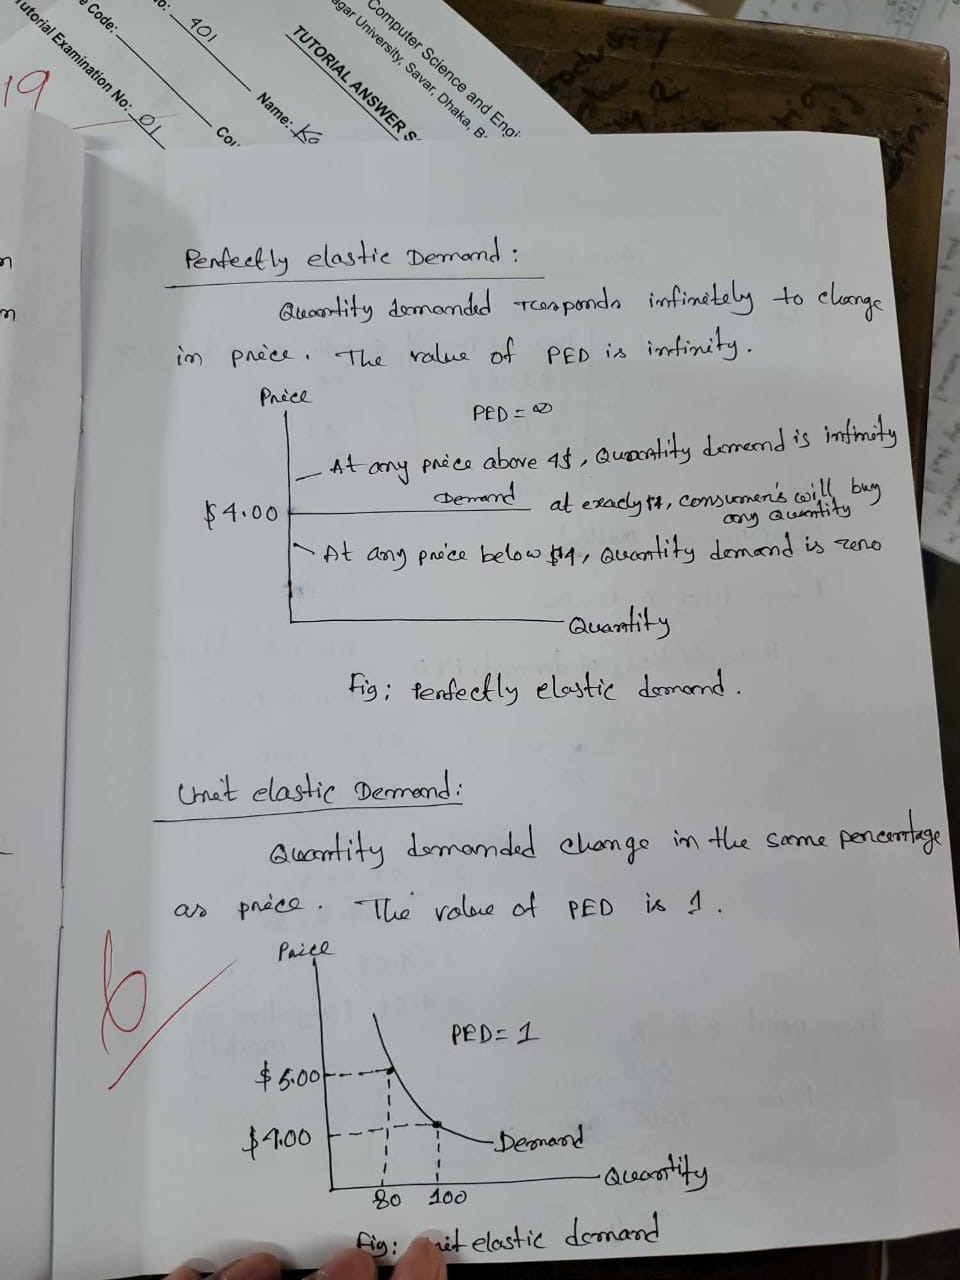 Computer Science and Engi
agar University, Savar, Dhaka, B
TUTORIAL ANSWER S
401
Name:
e Code:
Cou
Tutorial Examination No: 01
19
Perfectly elastic Demand:
Quantity demanded responds infinitely to change
in price. The value of PED is infinity.
Price
PED = ∞
At any price above 4$, Quantity demand is infinity
Demand
$4.00
at exacly $4, consumer's will buy
any quantity
At any price below $4, Quantity demand is zero
Quantity
Fig: Perfectly elastic demand.
Unit elastic Demand:
Quantity demanded change in the same percentage
as price. The value of PED is 1.
6
Price
PED = 1
$5.00
$4.00
Demand
Quantity
80 100
Fig: Unit elastic demand